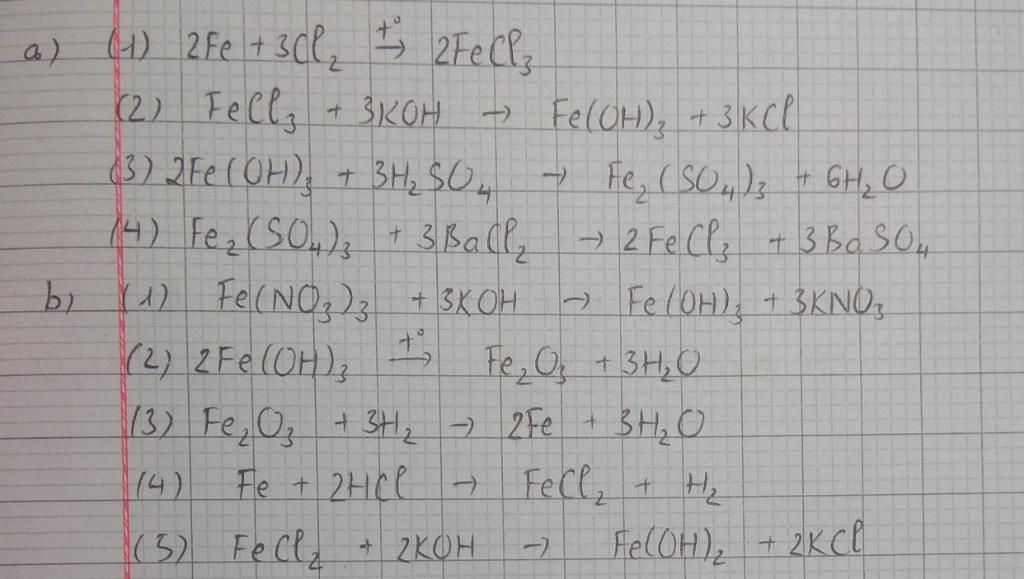 a) (1) 2Fe + 3Cl₂ t°→ 2FeCl₃
(2) FeCl₃ + 3KOH → Fe(OH)₃ + 3KCl
(3) 2Fe(OH)₃ + 3H₂SO₄ → Fe₂(SO₄)₃ + 6H₂O
(4) Fe₂(SO₄)₃ + 3BaCl₂ → 2FeCl₃ + 3BaSO₄
b) (1) Fe(NO₃)₃ + 3KOH → Fe(OH)₃ + 3KNO₃
(2) 2Fe(OH)₃ t°→ Fe₂O₃ + 3H₂O
(3) Fe₂O₃ + 3H₂ → 2Fe + 3H₂O
(4) Fe + 2HCl → FeCl₂ + H₂
(5) FeCl₂ + 2KOH → Fe(OH)₂ + 2KCl